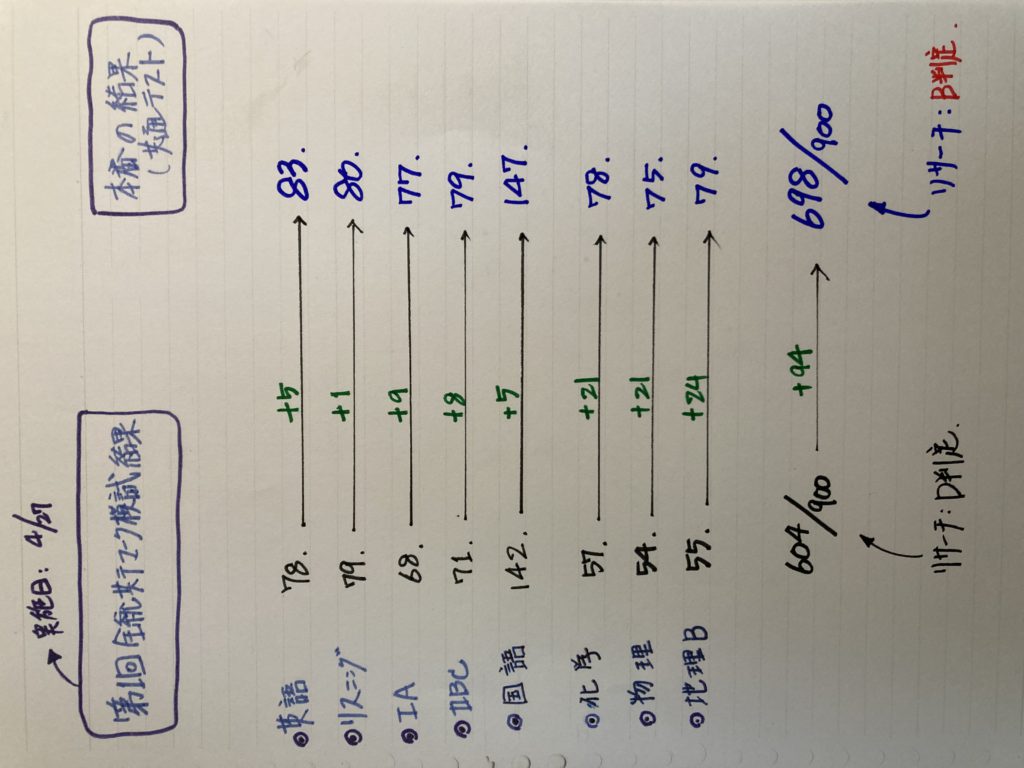 実施日: 4/27
第1回全統共テマーク模試結果
本番の結果
(共通テスト)
◎英語 78. +5 83.
◎リスニング 79. +1 80.
◎ⅠA 68. +9 77.
◎ⅡBC 71. +8 79.
◎国語 142. +5 147.
◎化学 57. +21 78.
◎物理 54. +21 75.
◎地理B 55. +24 79.
604/900 +94 698/900
リサーチ: D判定. リサーチ: B判定.